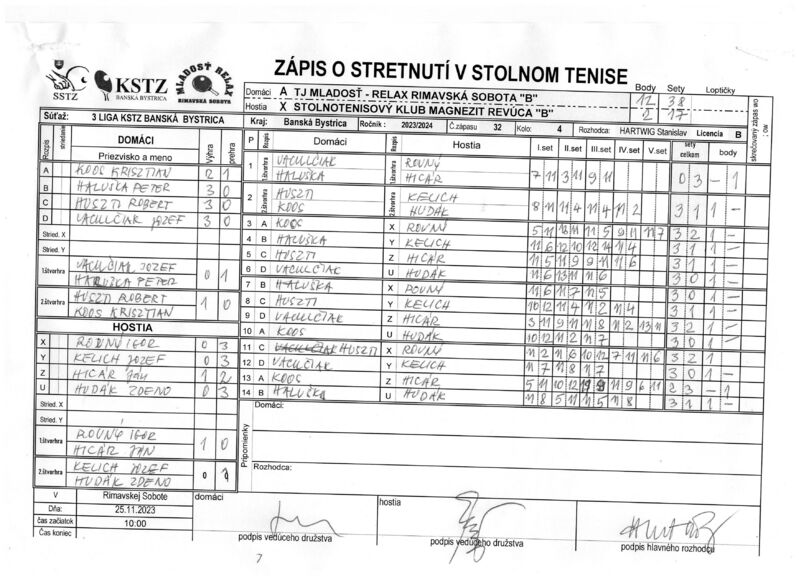 SSTZ
KSTZ
BANSKÁ BYSTRICA
MLADOSŤ RELAX
RIMAVSKÁ SOBOTA
ZÁPIS O STRETNUTÍ V STOLNOM TENISE
Domáci A TJ MLADOSŤ - RELAX RIMAVSKÁ SOBOTA "B"
Hostia X STOLNOTENISOVÝ KLUB MAGNEZIT REVÚCA "B"
Body Sety Loptičky
12 38
2 17
Súťaž: 3 LIGA KSTZ BANSKÁ BYSTRICA
Kraj: Banská Bystrica Ročník: 2023/2024 Č.zápasu 32 Kolo: 4 Rozhodca: HARTWIG Stanislav Licencia B
Rozpis striedanie DOMÁCI Výhra prehra
Priezvisko a meno
A KOOS KRISZTIAN 2 1
B HALUŠKA PETER 3 0
C HUSZTI ROBERT 3 0
D VACULČIAK JOZEF 3 0
Stried. X
Stried. Y
1.štvorhra VACULČIAK JOZEF 0 1
HALUŠKA PETER
2.štvorhra HUSZTI ROBERT 1 0
KOOS KRISZTIAN
HOSTIA
X ROVNÝ IGOR 0 3
Y KELICH JOZEF 0 3
Z HICÁR JÁN 1 2
U HUDÁK ZDENO 0 3
Stried. X
Stried. Y
1.štvorhra ROVNÝ IGOR 1 0
HICÁR JÁN
2.štvorhra KELICH JOZEF 0 1
HUDÁK ZDENO
P Rozpis Domáci Rozpis Hostia I.set II.set III.set IV.set V.set sety celkom body
1 1.štvorhra VACULČIAK HALUŠKA 1.štvorhra ROVNÝ HICÁR 7 11 3 11 9 11 0 3 – 1
2 2.štvorhra HUSZTI KOOS 2.štvorhra KELICH HUDÁK 8 11 11 4 11 4 11 2 3 1 1 –
3 A KOOS X ROVNÝ 5 11 13 11 11 5 9 11 11 7 3 2 1 –
4 B HALUŠKA Y KELICH 11 6 12 10 12 14 11 4 3 1 1 –
5 C HUSZTI Z HICÁR 11 5 11 9 9 11 11 6 3 1 1 –
6 D VACULČIAK U HUDÁK 11 6 13 11 11 6 3 0 1 –
7 B HALUŠKA X ROVNÝ 11 6 11 7 11 5 3 0 1 –
8 C HUSZTI Y KELICH 10 12 11 4 11 2 11 4 3 1 1 –
9 D VACULČIAK Z HICÁR 3 11 9 11 11 8 11 2 13 11 3 2 1 –
10 A KOOS U HUDÁK 12 10 11 2 11 7 3 0 1 –
11 C VACULČIAK HUSZTI X ROVNÝ 11 2 11 6 10 12 7 11 11 6 3 2 1
12 D VACULČIAK Y KELICH 11 7 11 8 11 7 3 0 1 –
13 A KOOS Z HICÁR 5 11 10 12 11 9 11 9 6 11 2 3 – 1
14 B HALUŠKA U HUDÁK 11 8 5 11 11 5 11 8 3 1 1 –
Pripomienky
Domáci:
Rozhodca:
V Rimavskej Sobote
Dňa: 25.11.2023
čas začiatok 10:00
Čas koniec
domáci
podpis vedúceho družstva
hostia
podpis vedúceho družstva
podpis hlavného rozhodcu